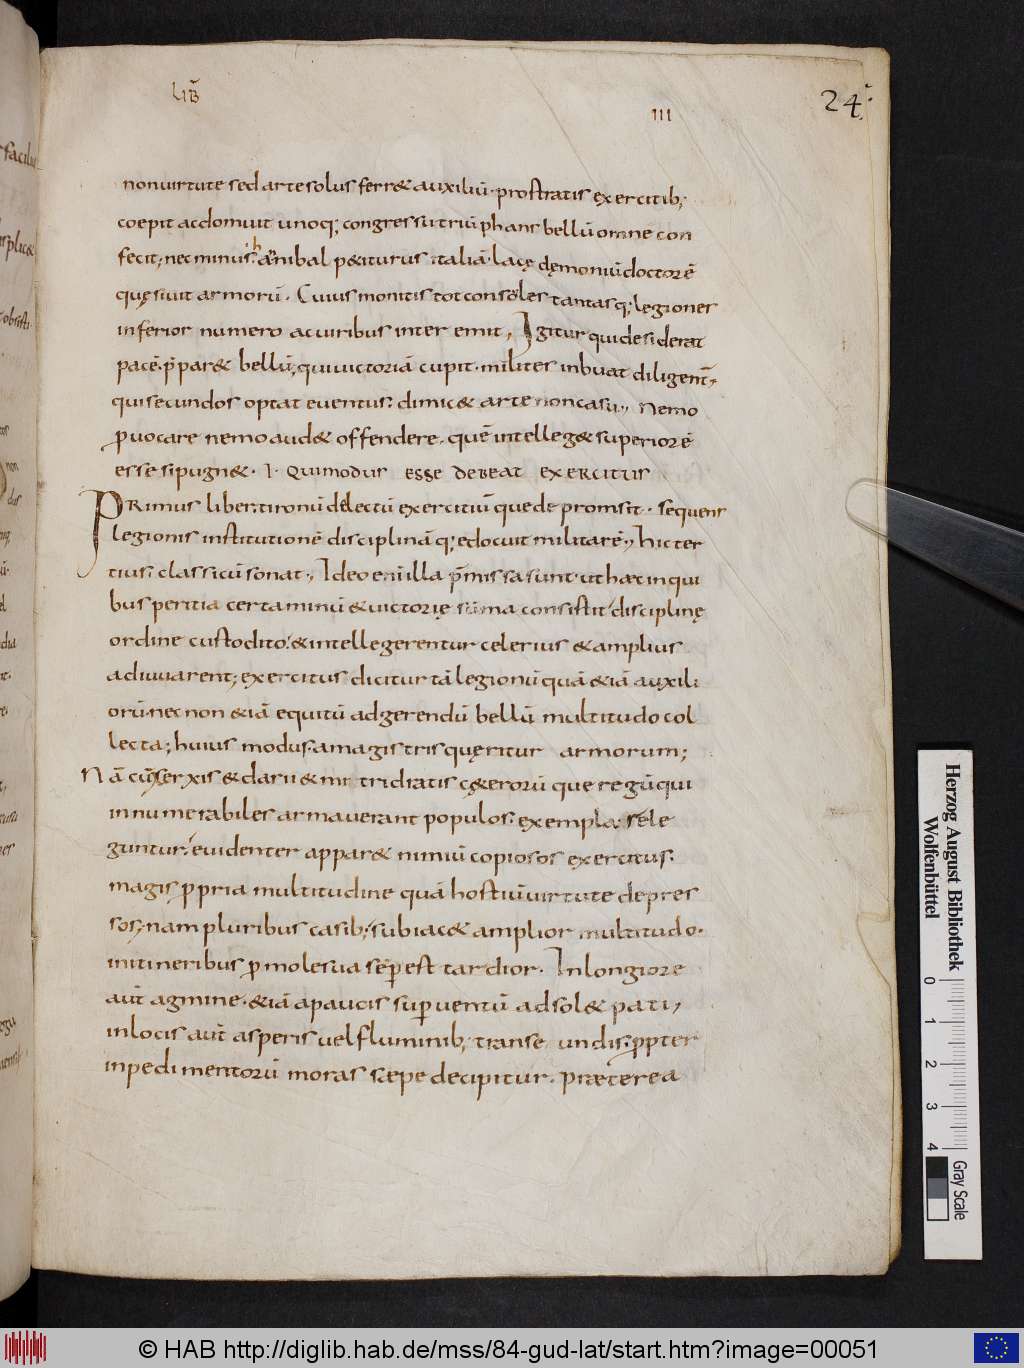 LIB̄
III
24.
non uirtute sed arte solus ferr& auxiliū· prostratis exercitib;
coepit ac domuit uno q; congressu triūphans bellū omne con
fecit; nec minus· hannibal p&iturus italiā· lacedemoniū doctorē
quęsiuit armorū· Cuius monitis tot consoles tantas q; legiones
inferior numero ac uiribus inter emit, Igitur qui desiderat
pacē· p̄par& bellū; qui uictoriā cupit· milites inbuat diligent̄,
qui secundos optat euentus· dimic& arte non casu,, Nemo
ꝓuocare nemo aud& offendere· quē intelleg& superiorē
esse si pugn&· I· QUI MODUS ESSE DEBEAT EXERCITUS
PRimus liber· tironū delectū exercitiū que de promisit· sequens
legionis institutionē disciplinā q; edocuit militarē,, hic ter
tius· classicū sonat·, Ideo enī illa p̄missa sunt· ut hæc in qui
bus peritia certaminū & uictorię sūma consistit· disciplinę
ordine custodito· & intellegerentur celerius & amplius
adiuuarent; exercitus dicitur tā legionū quā &iā auxili
orū· nec non &iā equitū ad gerendū bellū multitudo col
lecta; huius modus· a magistris quęritur armorum;
Nā cū serxis & darii & mitridiatis c&erorū que regū qui
innumerabiles armauerant populos· exempla· rele
guntur· euidenter appar& nimiū copiosos exercitus·
magis ꝓpria multitudine quā hostiū uirtute depres
sos; nam pluribus casib; subiac& amplior multitudo·
in itineribus ꝓ mole sua sēp est tardior· In longiore
aut̄ agmine· &iā a paucis supuentū ad sol& pati,
in locis aut̄ asperis uel fluminib; transeundis· ꝓpter
inpedimentorū moras sæpe decipitur· præterea
Herzog August Bibliothek
Wolfenbüttel
0 1 2 3 4
Gray Scale
© HAB http://diglib.hab.de/mss/84-gud-lat/start.htm?image=00051